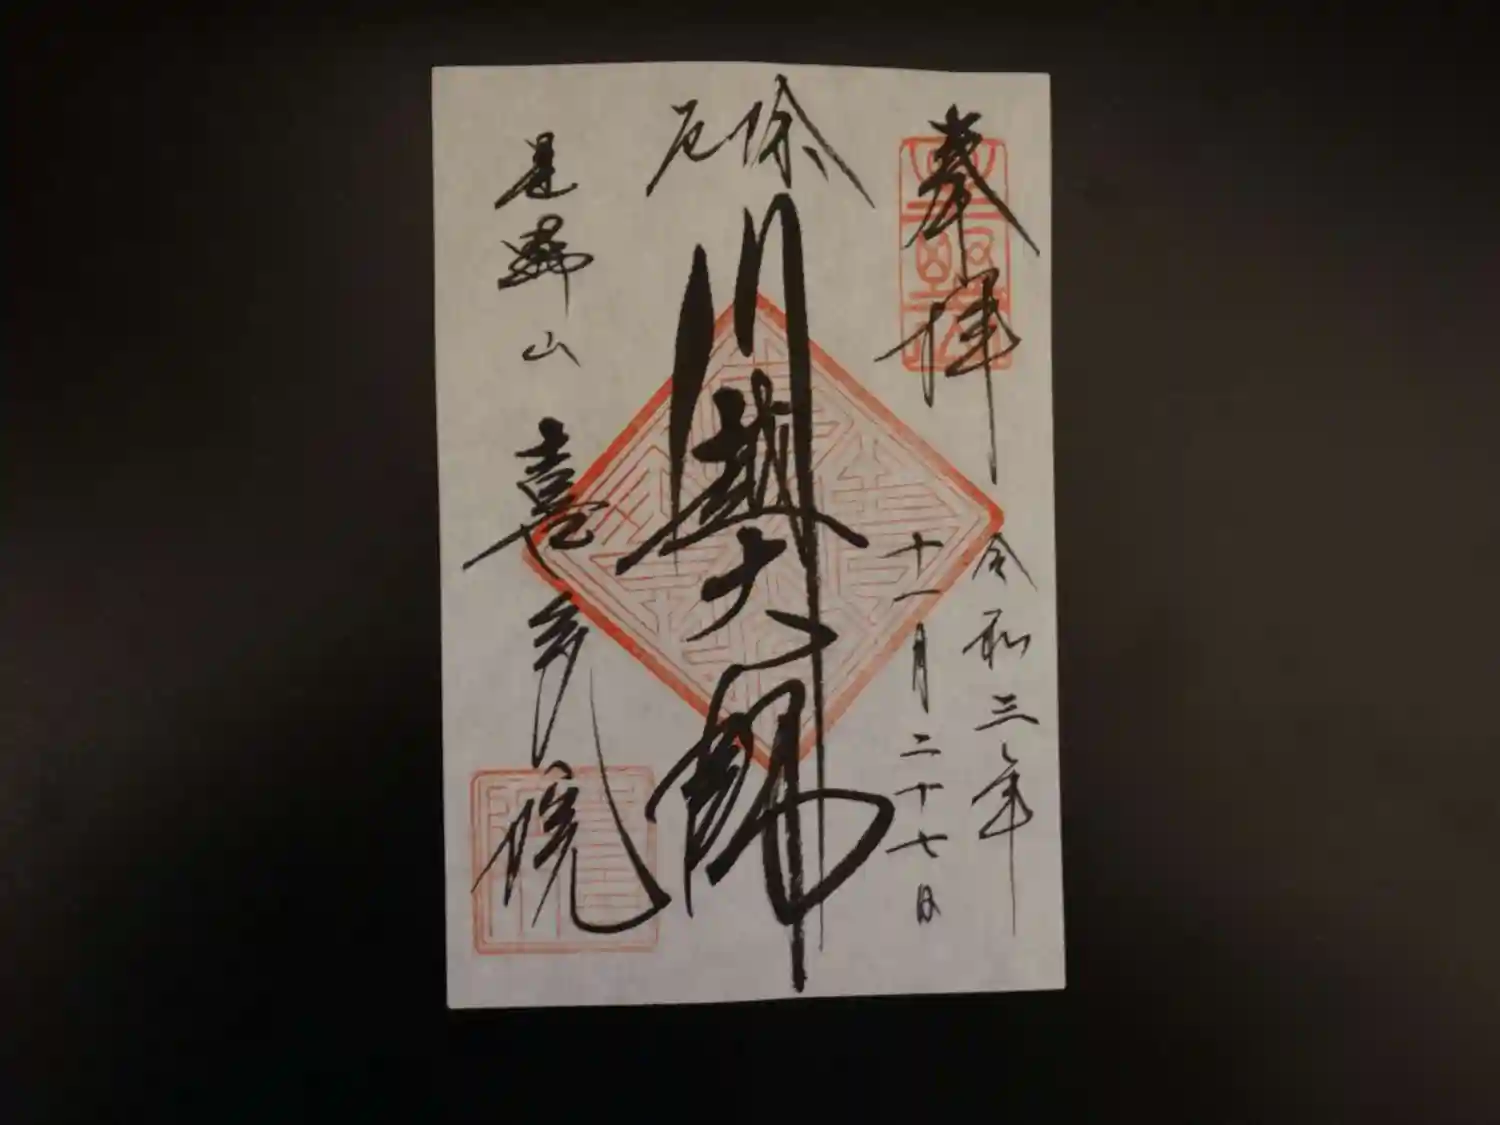 奉拝
令和三年
十一月二十七日
厄除
川越大師
星野山 喜多院